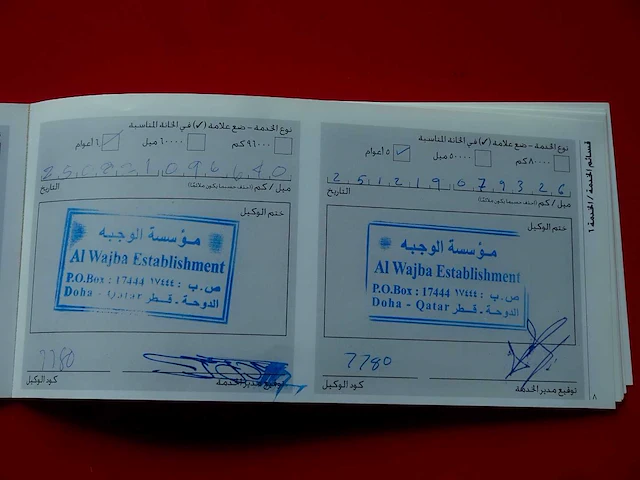 قسائم الخدمة / الخدمة ١
نوع الخدمة - ضع علامة (✓) في الخانة المناسبة
٨٠٠٠٠ كم
٥٠٠٠٠ ميل
٥ أعوام ✓
2 5 1 2 1 9 0 7 9 3 2 6
ميل / كم (احذف حسبما يكون ملائمًا)
التاريخ
ختم الوكيل
مؤسسة الوجبه
Al Wajba Establishment
P.O.Box : 17444 ص.ب : ١٧٤٤٤
Doha - Qatar الدوحة - قطر
7780
توقيع مدير الخدمة
كود الوكيل
٨
نوع الخدمة - ضع علامة (✓) في الخانة المناسبة
٩٦٠٠٠ كم
٦٠٠٠٠ ميل
٦ أعوام
ميل / كم (احذف حسبما يكون ملائمًا)
التاريخ
ختم الوكيل
مؤسسة الوجبه
Al Wajba Establishment
P.O.Box : 17444 ص.ب : ١٧٤٤٤
Doha - الدوحة - قطر
7780
توقيع مدير الخدمة
كود الوكيل